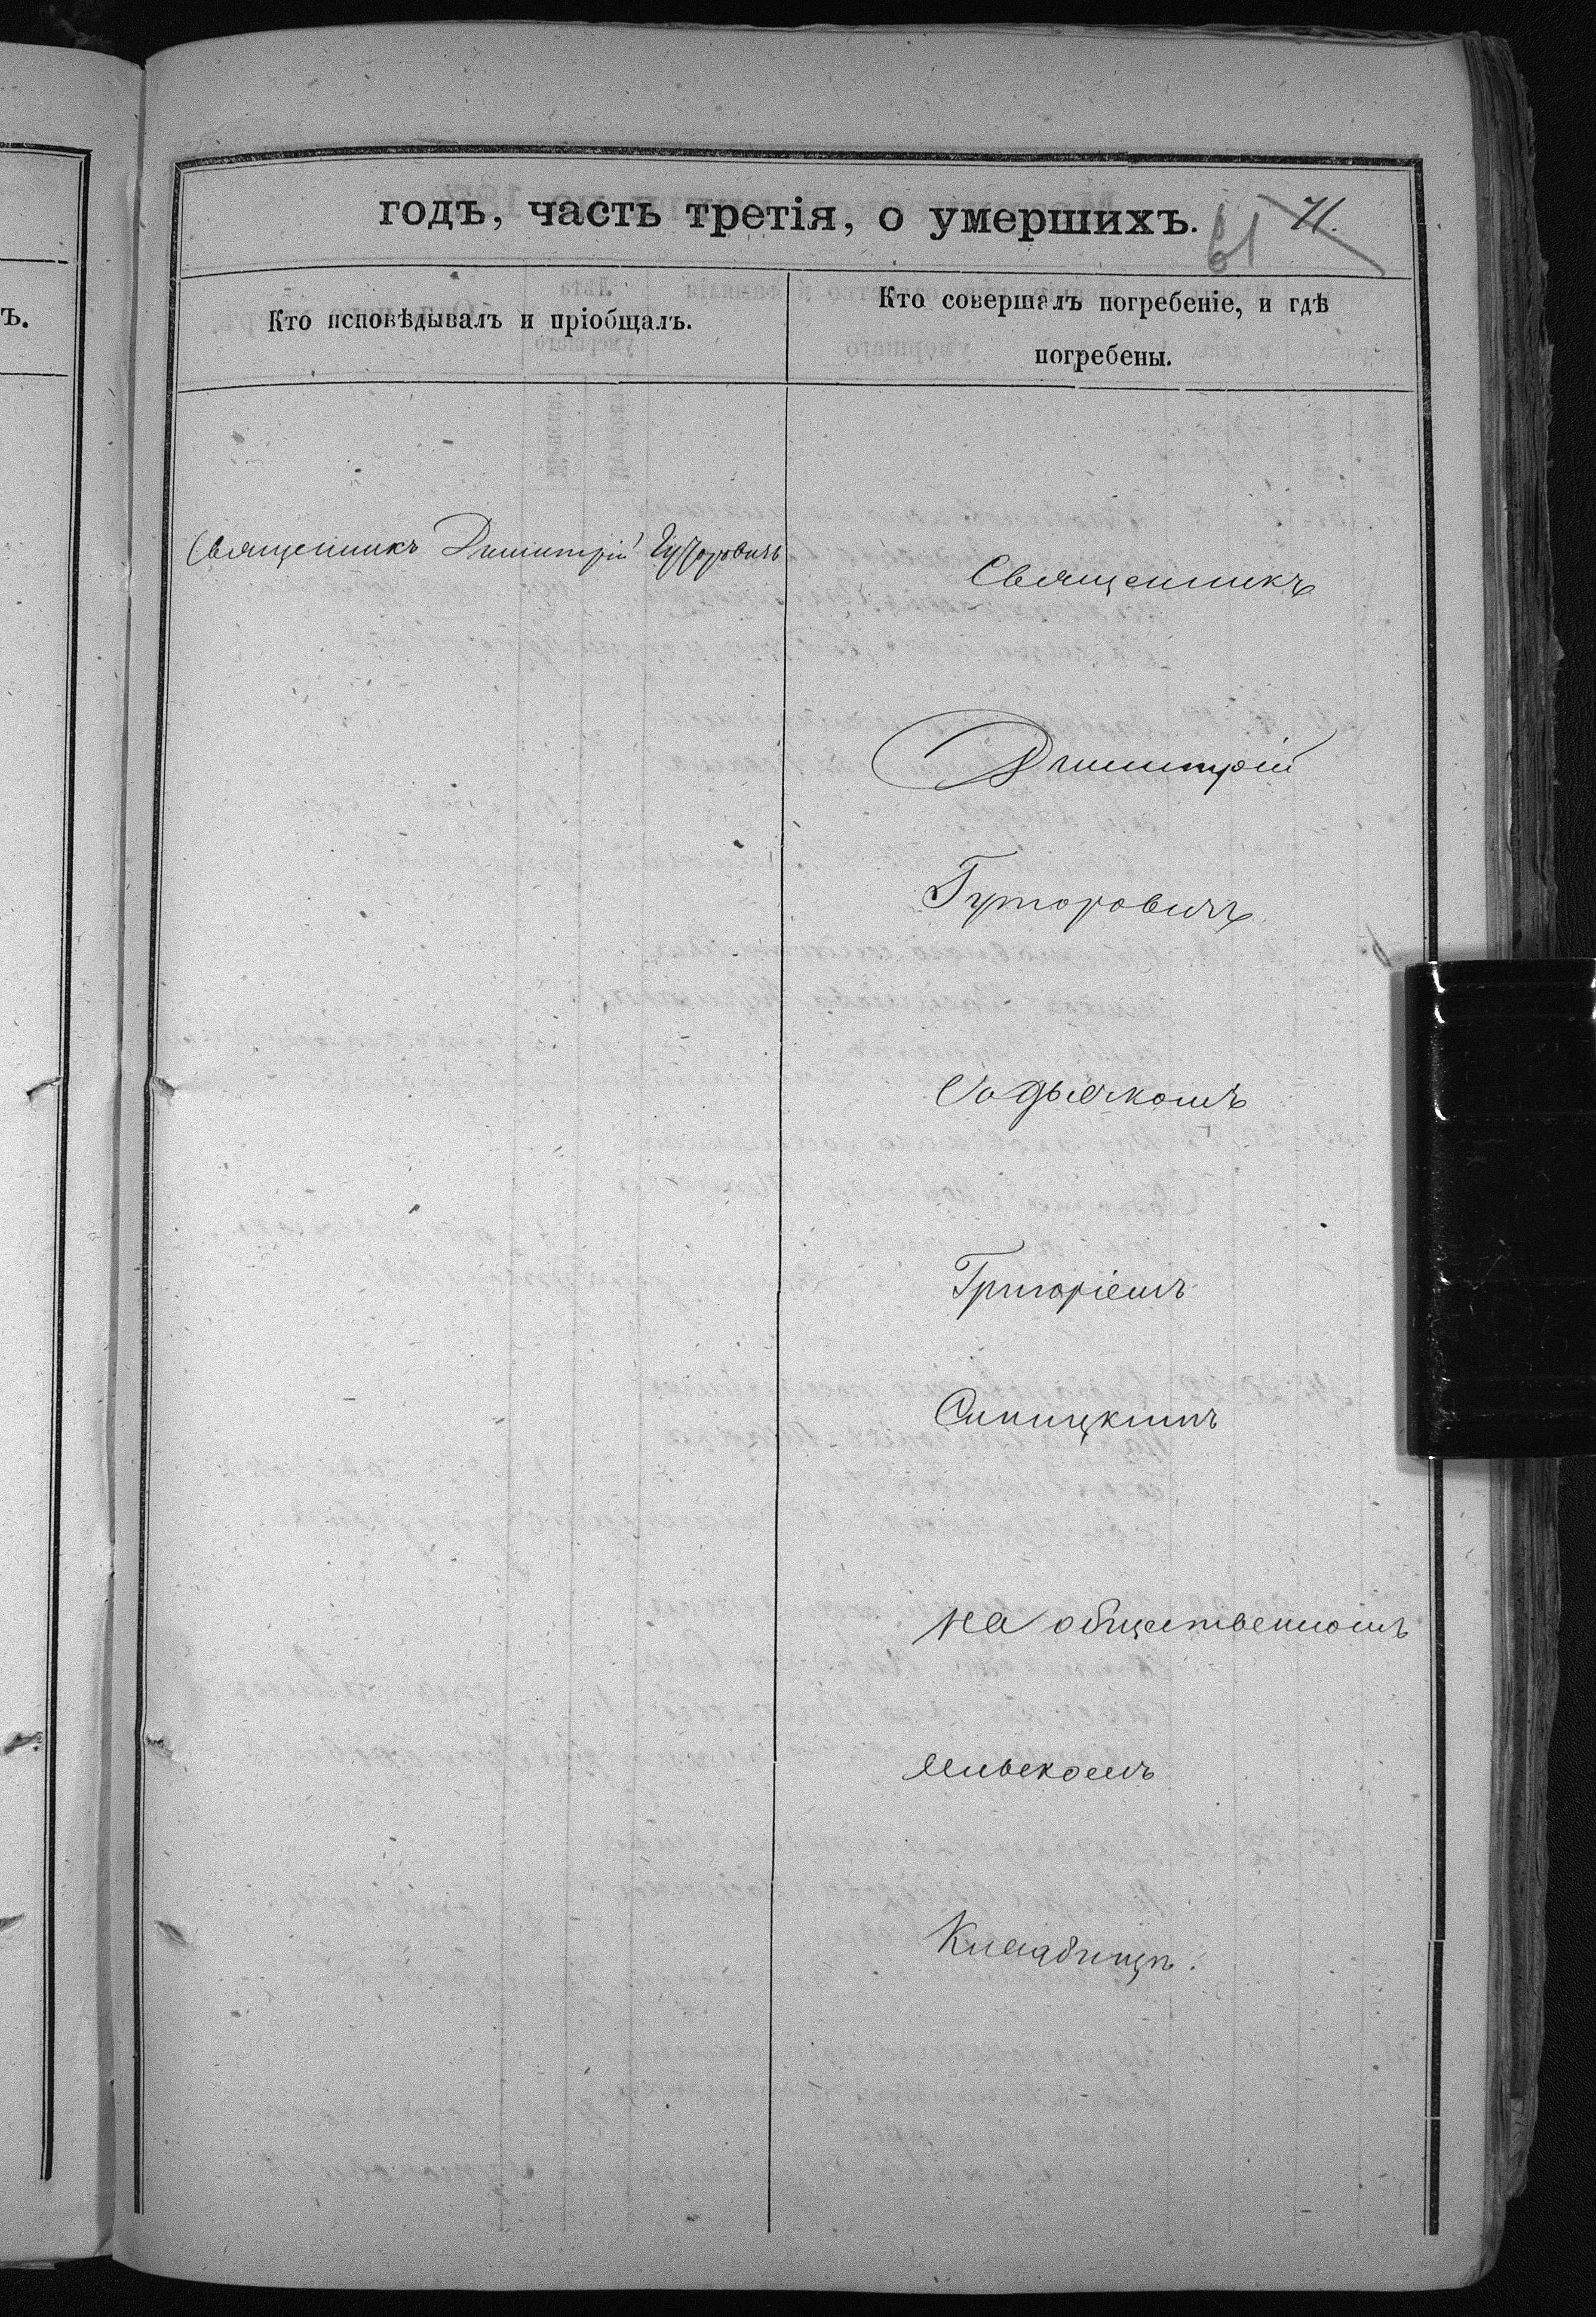 ъ.
годъ, часть третія, о умершихъ. 61 71.
Кто исповѣдывалъ и пріобщалъ.
Кто совершалъ погребеніе, и гдѣ
погребены.
Священникъ Димитрій Гуторовичъ
Священникъ
Димитрій
Гуторовичъ
Со дьячкомъ
Григоріемъ
Синицкимъ
на общественномъ
Кладбищѣ.